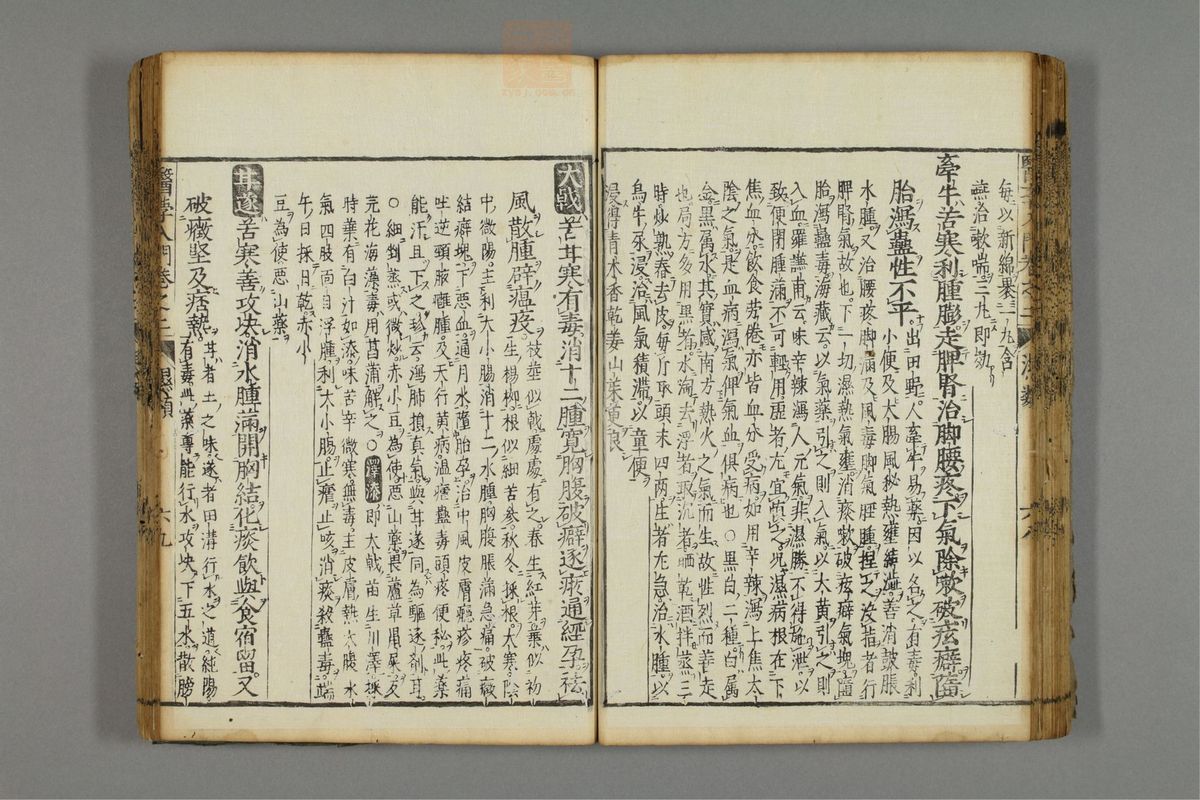 每以新綿裹一丸含
無治嗽喘三九即効
牽牛苦寒利腫膨走脾腎治脚腰疼下氣除嗽破痃癖墮
胎瀉蠱性不平
出田野人牽牛易藥因以名之有毒利
小便及大腸風秘熱壅結澁善消皷脹
水腫又治腰疼脚滿及風毒脚氣脛腫捏之没指者行
脾腎氣故也下一切濕熱氣壅消痰軟破痃癖氣塊墮
胎瀉蠱毒海藏云以氣藥引之則入氣以大黄引之則
入血羅謙甫云味辛辣瀉人元氣非濕勝不得施泄以
致便閉腫滿不可輕用虚者尤宜戒之况濕病根在下
焦血分飲食勞倦亦皆血分受病如用辛辣瀉上焦太
陰之氣是血病瀉氣俾氣血俱病也○黒白二種白属
金黒属水其實感南方熱火之氣而生故性烈而善走
也局方多用黒者水淘去浮者取沉者晒乾酒拌蒸三
時炒熟舂去皮每斤取頭末四兩生者尤急治水腫以
烏牛尿浸治風氣積滯以童便
大戟苦甘寒有毒消十二腫寛胸腹破癖逐瘀通經孕祛
風散腫辟瘟疫
枝莖似戟處處有之春生紅芽葉似初
生楊柳根似細苦參秋冬採根大寒陰
中微陽主利大小腸消十二水腫胸腹脹滿急痛破癥
結癖塊下惡血通月水墮胎孕治中風皮膚癮疹疼痛
吐逆頸腋癰腫及天行黄病温瘧蠱毒頭疼便秘此藥
能汗且下之珍云瀉肺損真氣與甘遂同為驅逐剤耳
○細剉蒸或微炒赤小豆為使惡山藥畏蘆草鼠屎反
芫花海藻毒用菖蒲解之○澤漆即大戟苗生川澤採
時葉有白汁如漆味苦辛微寒無毒主皮膚熱大腹水
氣四肢面目浮腫利大小腸止瘧止咳消痰殺蠱毒端
午日採日乾赤小
豆為使惡山藥
甘遂苦寒善攻决消水腫滿開胸結化痰飲與食宿留又
破癥堅及痞熱
甘者土之味遂者田溝行水之道純陽
有毒此藥專能行水攻决下五水散膀
醫學入門卷之二
六九